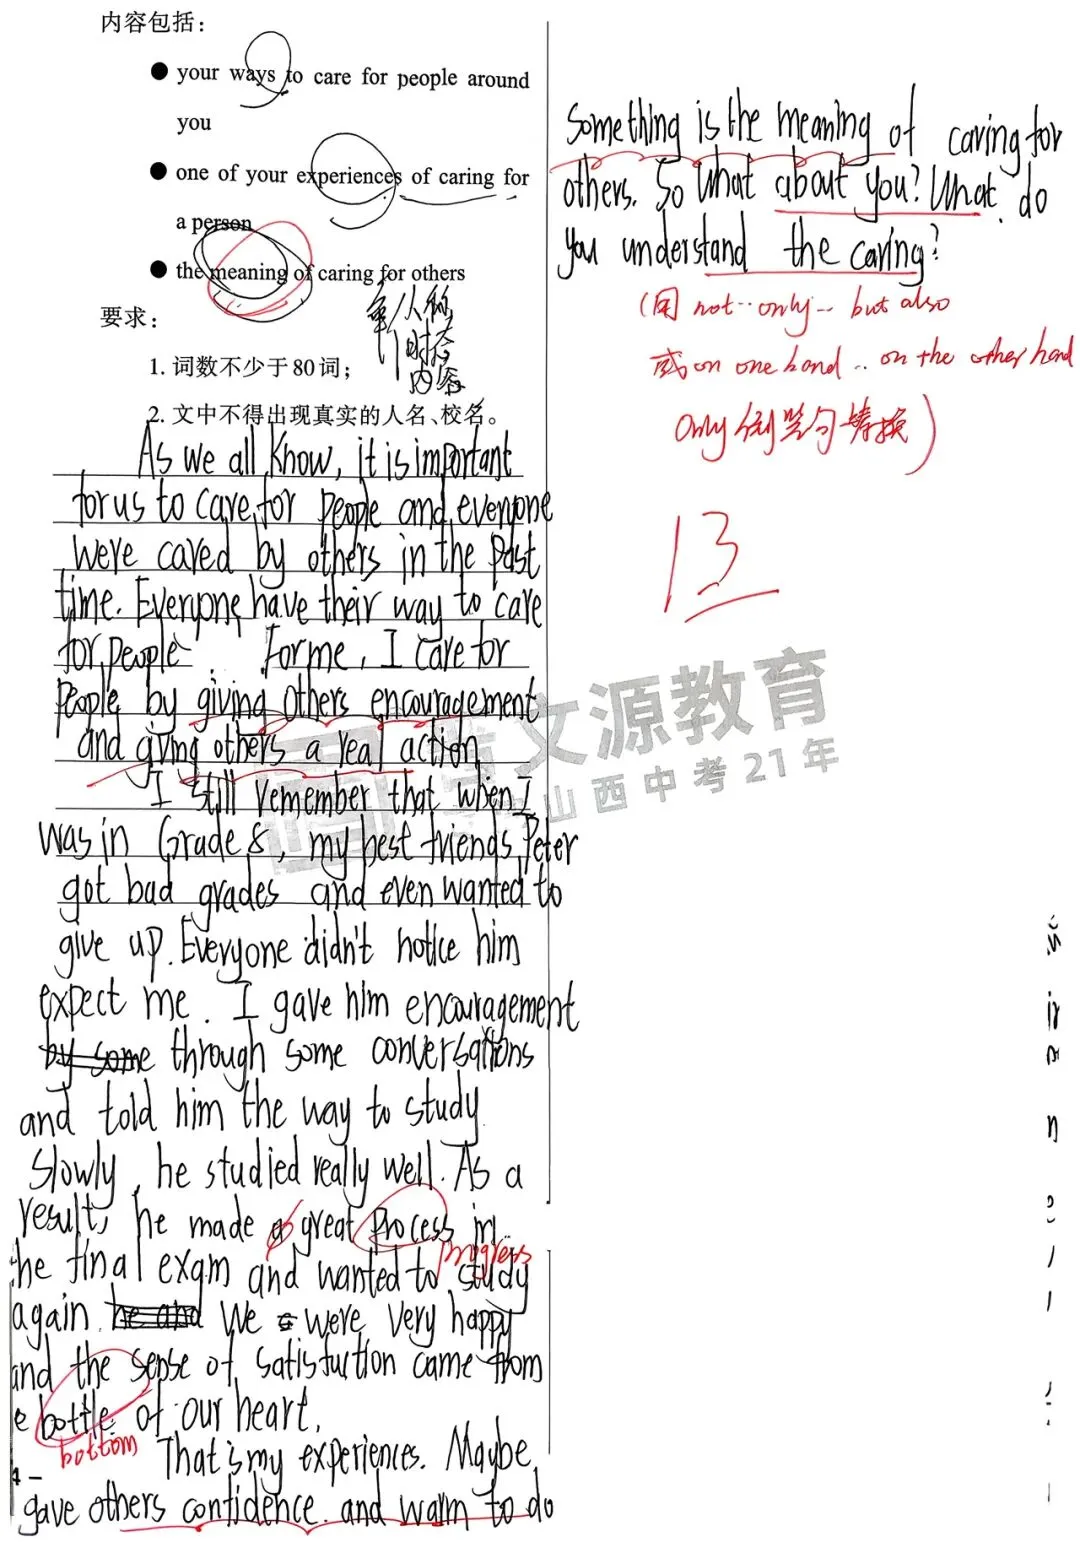 内容包括:
● your ways to care for people around
you
● one of your experiences of caring for
a person
● the meaning of caring for others
要求:
1. 词数不少于80词;
2. 文中不得出现真实的人名、校名。
人称
时态
内容
As we all know, it is important
for us to care for people and everyone
were cared by others in the past
time. Everyone have their way to care
for people For me, I care for
people by giving others encouragement
and giving others a real action
I still remember that when I
was in Grade 8, my best friends Peter
got bad grades and even wanted to
give up. Everyone didn't notice him
expect me. I gave him encouragement
by some through some conversations
and told him the way to study
slowly, he studied really well. As a
result, he made a great process in
progress
he final exam and wanted to study
again he and We were very happy
and the sense of satisfaction came from
e bottle of our heart.
bottom
That is my experiences. Maybe
4 –
gave others confidence and warm to do
something is the meaning of caring for
others. So what about you? What do
you understand the caring?
(用 not only… but also
或 on one hand… on the other hand
Only 倒装句替换)
13
文源教育
山西中考21年